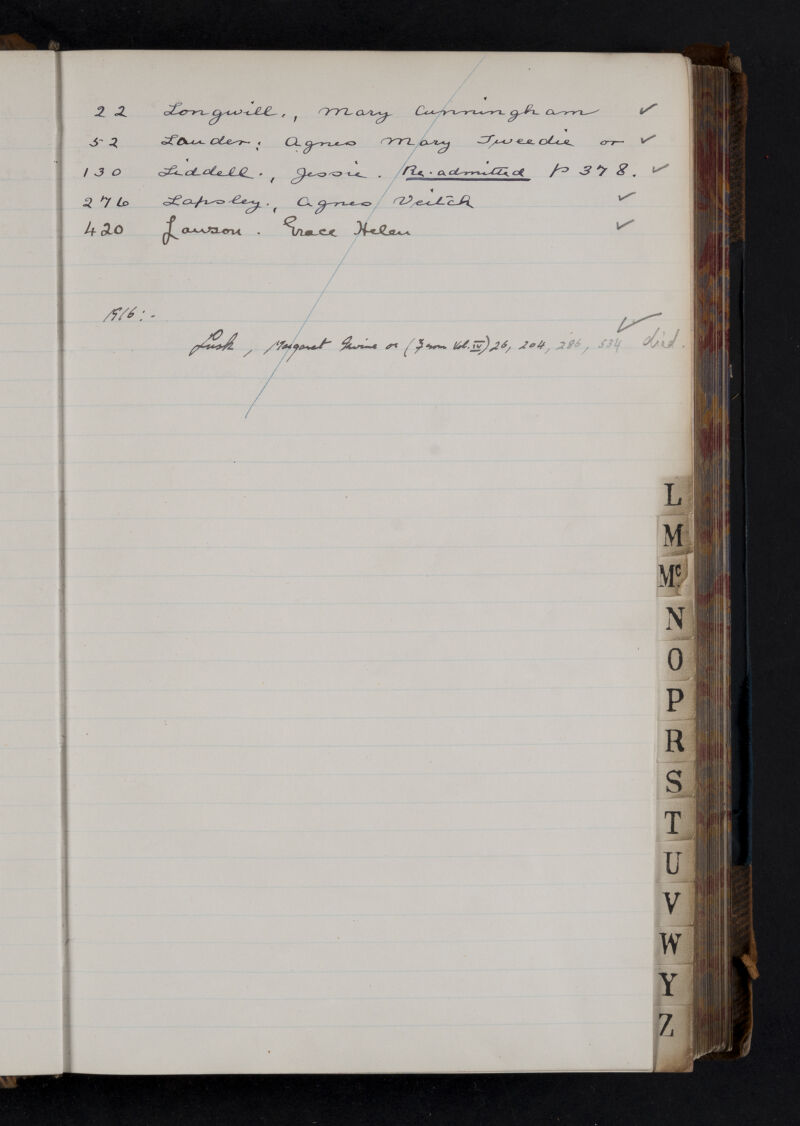 22 Longwill., Mary Cunningham ✓
52 Lauder; Agnes Mary Tweedie or ✓
130 Liddell., Jessie. Re-admitted p 378. ✓
276 Lapsley., Agnes Veitch ✓
420 Lawson. Grace Helen ✓
1916:-
Lusk, Margaret or (From Vol. IV) 26, 204, 286, 534 ✓ died.
L
M
Mc.
N
O
P
R
S
T
U
V
W
Y
Z